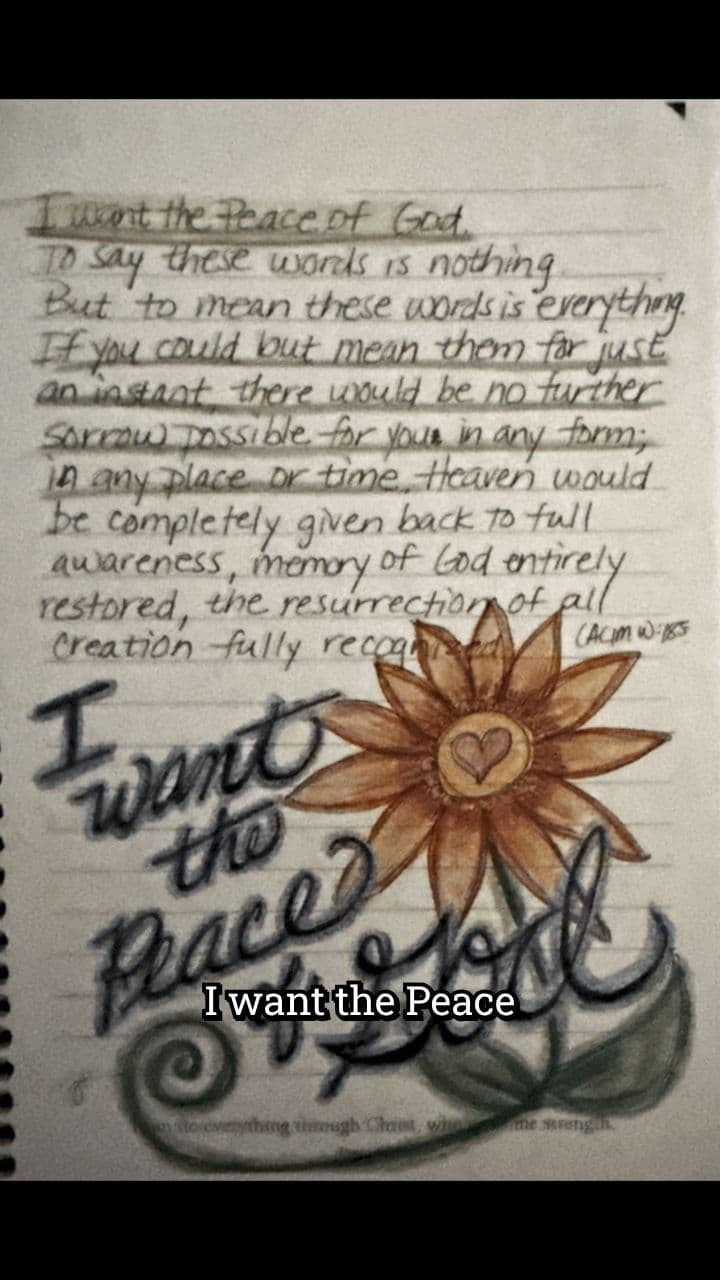 I want the Peace of God.
To say these words is nothing.
But to mean these words is everything.
If you could but mean them for just
an instant, there would be no further
sorrow possible for you in any form;
in any place or time. Heaven would
be completely given back to full
awareness, memory of God entirely
restored, the resurrection of all
creation fully recognized.
(ACIM W-185
I
want
the
Peace
of God
I want the Peace
do everything through Christ, me strength.